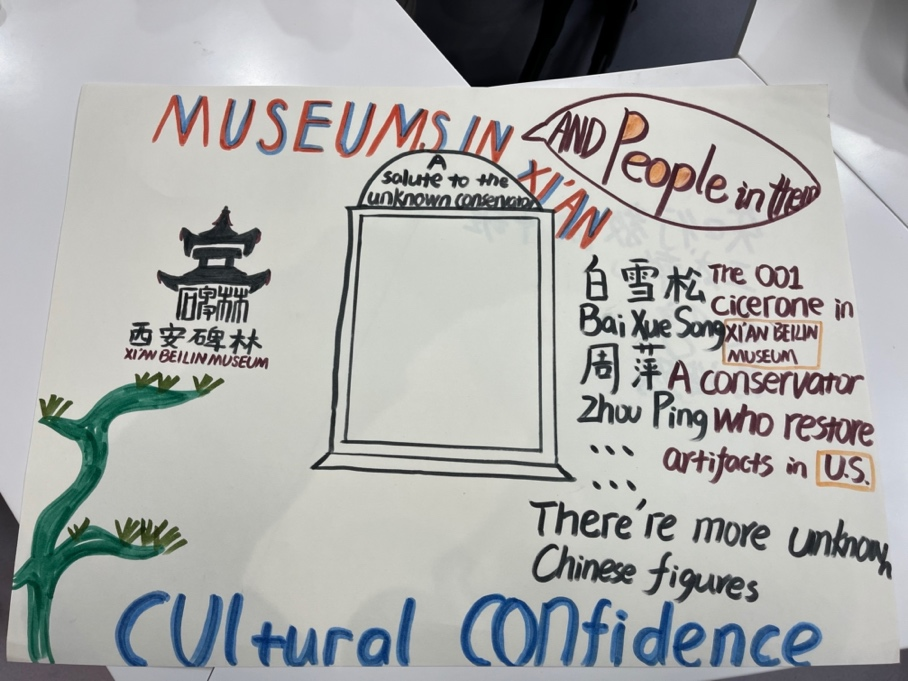 MUSEUMS IN XI'AN
AND People in them
A
salute to the
unknown conservator
碑林
西安碑林
XI'AN BEILIN MUSEUM
白雪松 The 001
cicerone in
Bai Xue Song XI'AN BEILIN
MUSEUM
周萍 A conservator
Zhou Ping who restore
...
artifacts in U.S.
...
There're more unknown
Chinese figures
CUltural CONfidence